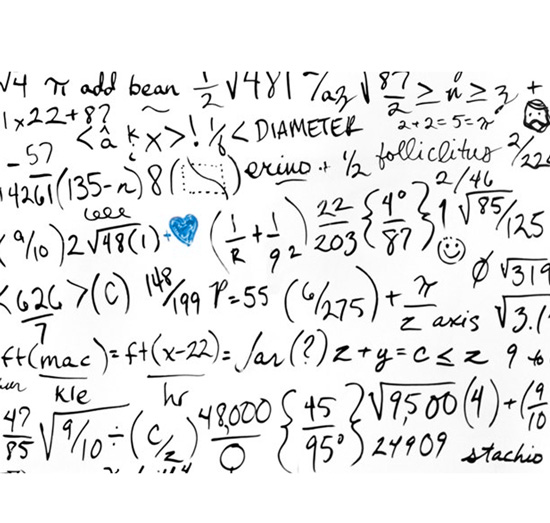 √4 π add bean 1/2 √481 7/az √87/2 ≥ n ≥ z +
1x22+8?
<â k x>! 1/6 < DIAMETER 2+2=5=π
-57
14261(135-n) 8 ( ) erino + 1/2 folliclitus 2/226
eee
(9/10) 2√48(1) + (1/R + 1/9 2) 22/203 {4°/87} 2/46 √85/125
<626/7>(C) 148/199 P=55 (6/275) + π/z axis Ø √319
√3.1
ft(mac)/kle = ft(x-22)/hr = far(?) z+y=c≤z 9 to
47/85 √9/10 ÷ (c/z) 48,000/O {45/95°} √9,500 (4) + (9/10
24909 stachio